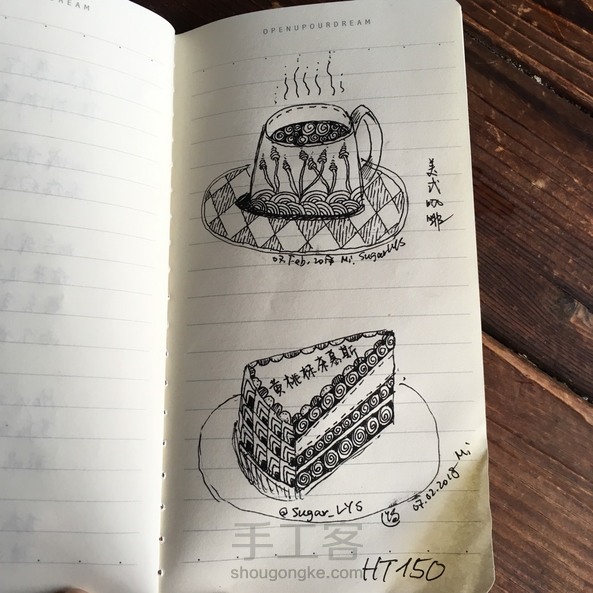 DREAM
OPENUPOURDREAM
美式咖啡
07. Feb. 2018 Mi. SugarLYS
黄桃抹茶慕斯
@Sugar_LYS
07.02.2018 Mi
手工客
shougongke.com
HT150